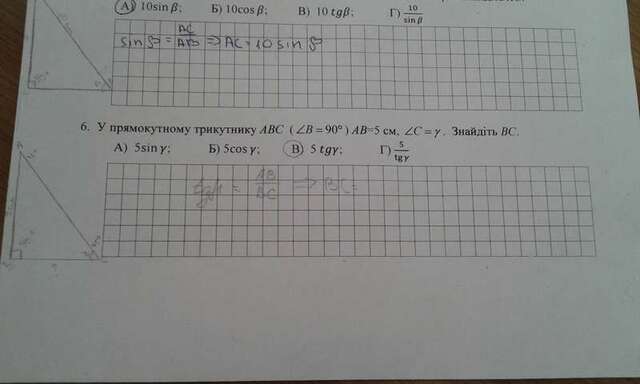 А) 10sin β; Б) 10cos β; В) 10 tgβ; Г) 10/sin β
sin β = AC/AB ⇒ AC = 10 sin β
6. У прямокутному трикутнику ABC (∠B = 90°) AB=5 см, ∠C = γ. Знайдіть BC.
А) 5sin γ; Б) 5cos γ; В) 5 tgγ; Г) 5/tgγ
= AB/BC ⇒ BC=